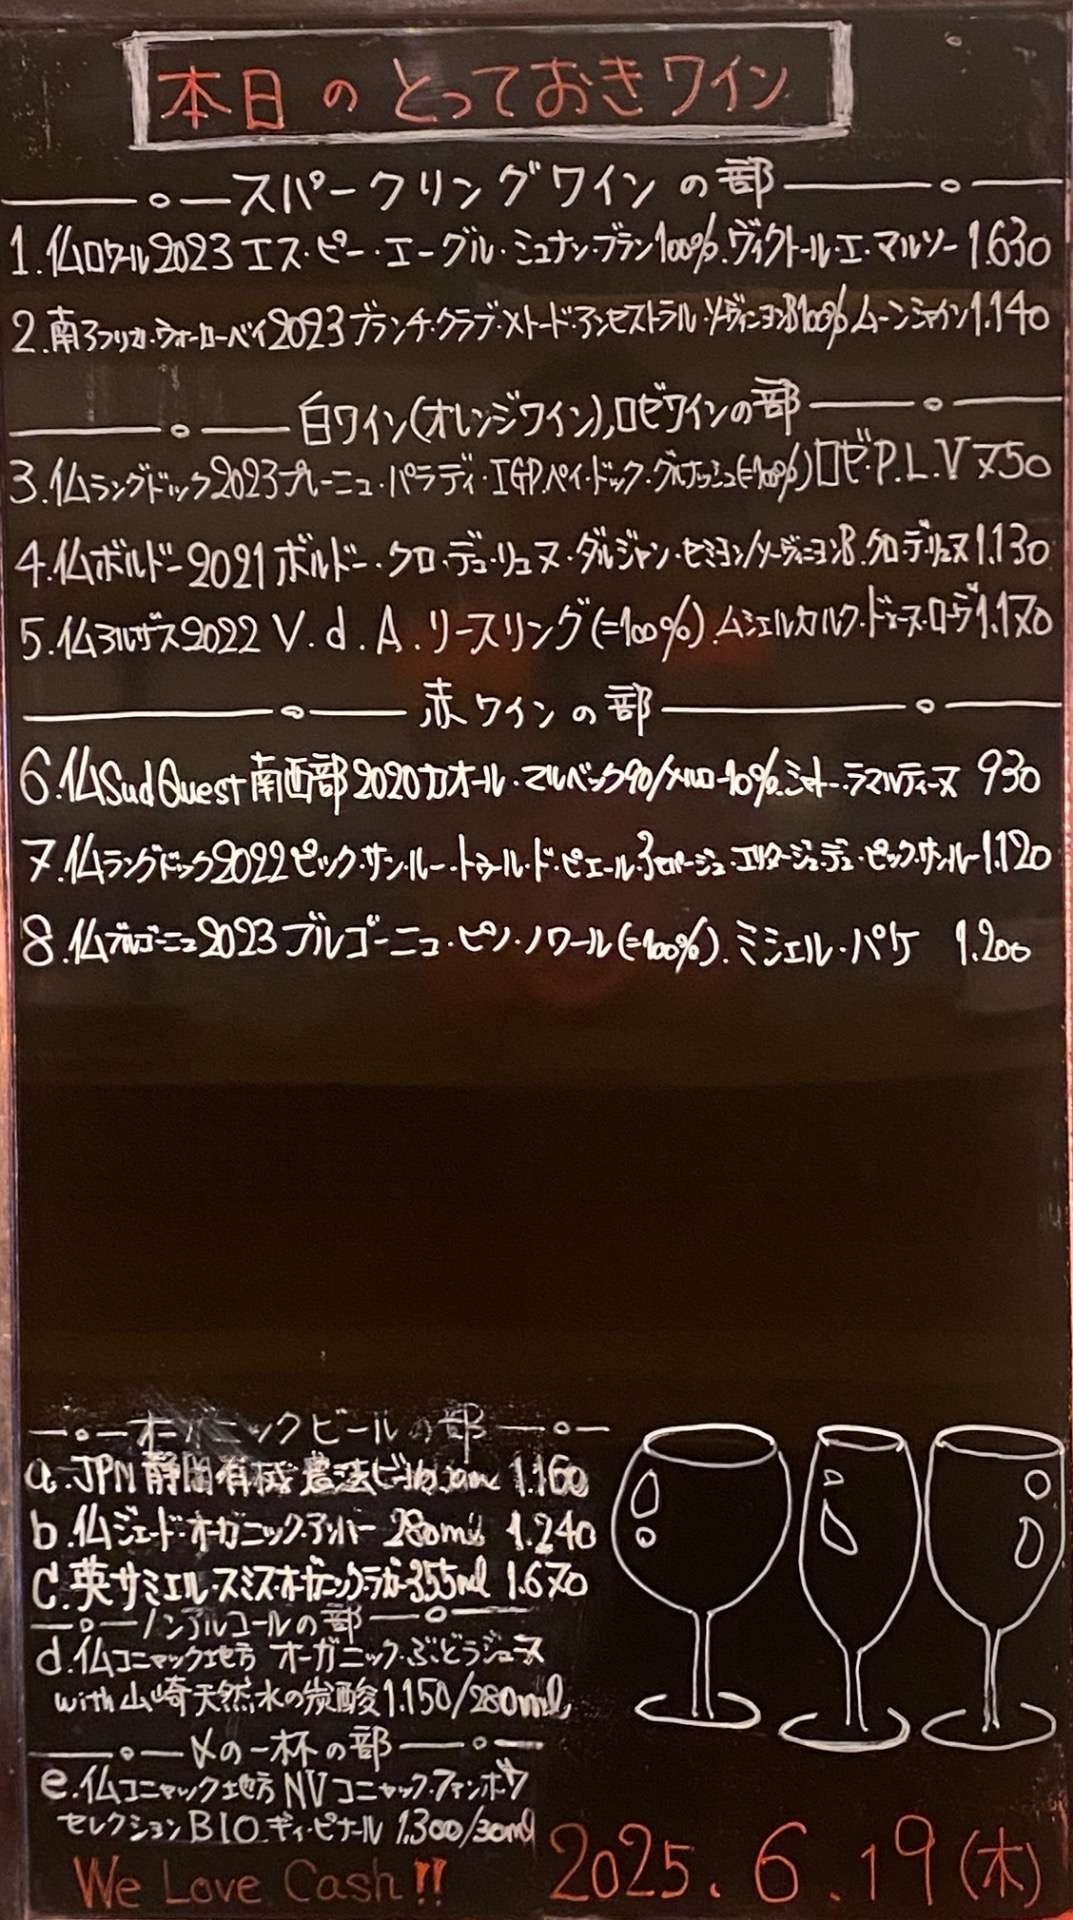 本日のとっておきワイン
スパークリングワインの部
1.仏ロワール2023エス・ピー・エーグル・ミュナン・ブラン100%.ヴィクトール・エ・マルソー 1.630
2.南アフリカ・ウォーローベイ2023ブランチ・クラブ・メトード・アンセストラル・ソーヴィニヨンB100%ムーンシャイン1.140
白ワイン(オレンジワイン),ロゼワインの部
3.仏ラングドック2023プレーニュ・パラディ・IGP.ペイ・ドック・グルナッシュ(=100%)ロゼ・P.L.V 750
4.仏ボルドー2021ボルドー・クロ・デュ・リュヌ・ダルジャン・セミヨン/ソーヴィニヨンB.クロ・デ・リュヌ1.130
5.仏アルザス2022 V.d.A.リースリング(=100%).ムシェルカルク・ドゥース・ローヴ1.170
赤ワインの部
6.仏Sud Ouest南西部2020カオール・マルベック90/メルロー10%.シャトー・ラマルティーヌ 930
7.仏ラングドック2022ピック・サン・ルー・トゥール・ド・ピエール・3セパージュ・エリタージュ・デュ・ピック・サン・ルー1.120
8.仏ブルゴーニュ2023ブルゴーニュ・ピノ・ノワール(=100%).ミシェル・パケ 1.200
オーガニックビールの部
a.JPN静岡有機農法ビール 1.160
b.仏ジェード・オーガニック・アンバー 280ml 1.240
c.英サミエル・スミス・オーガニックラガー355ml 1.670
ノンアルコールの部
d.仏コニャック地方 オーガニック・ぶどうジュース
with山崎天然水の炭酸1.150/280ml
〆の一杯の部
e.仏コニャック地方NVコニャック・ファンボワ
セレクションBIO.ギィ・ピナール 1.300/30ml
We Love Cash!!
2025.6.19(木)